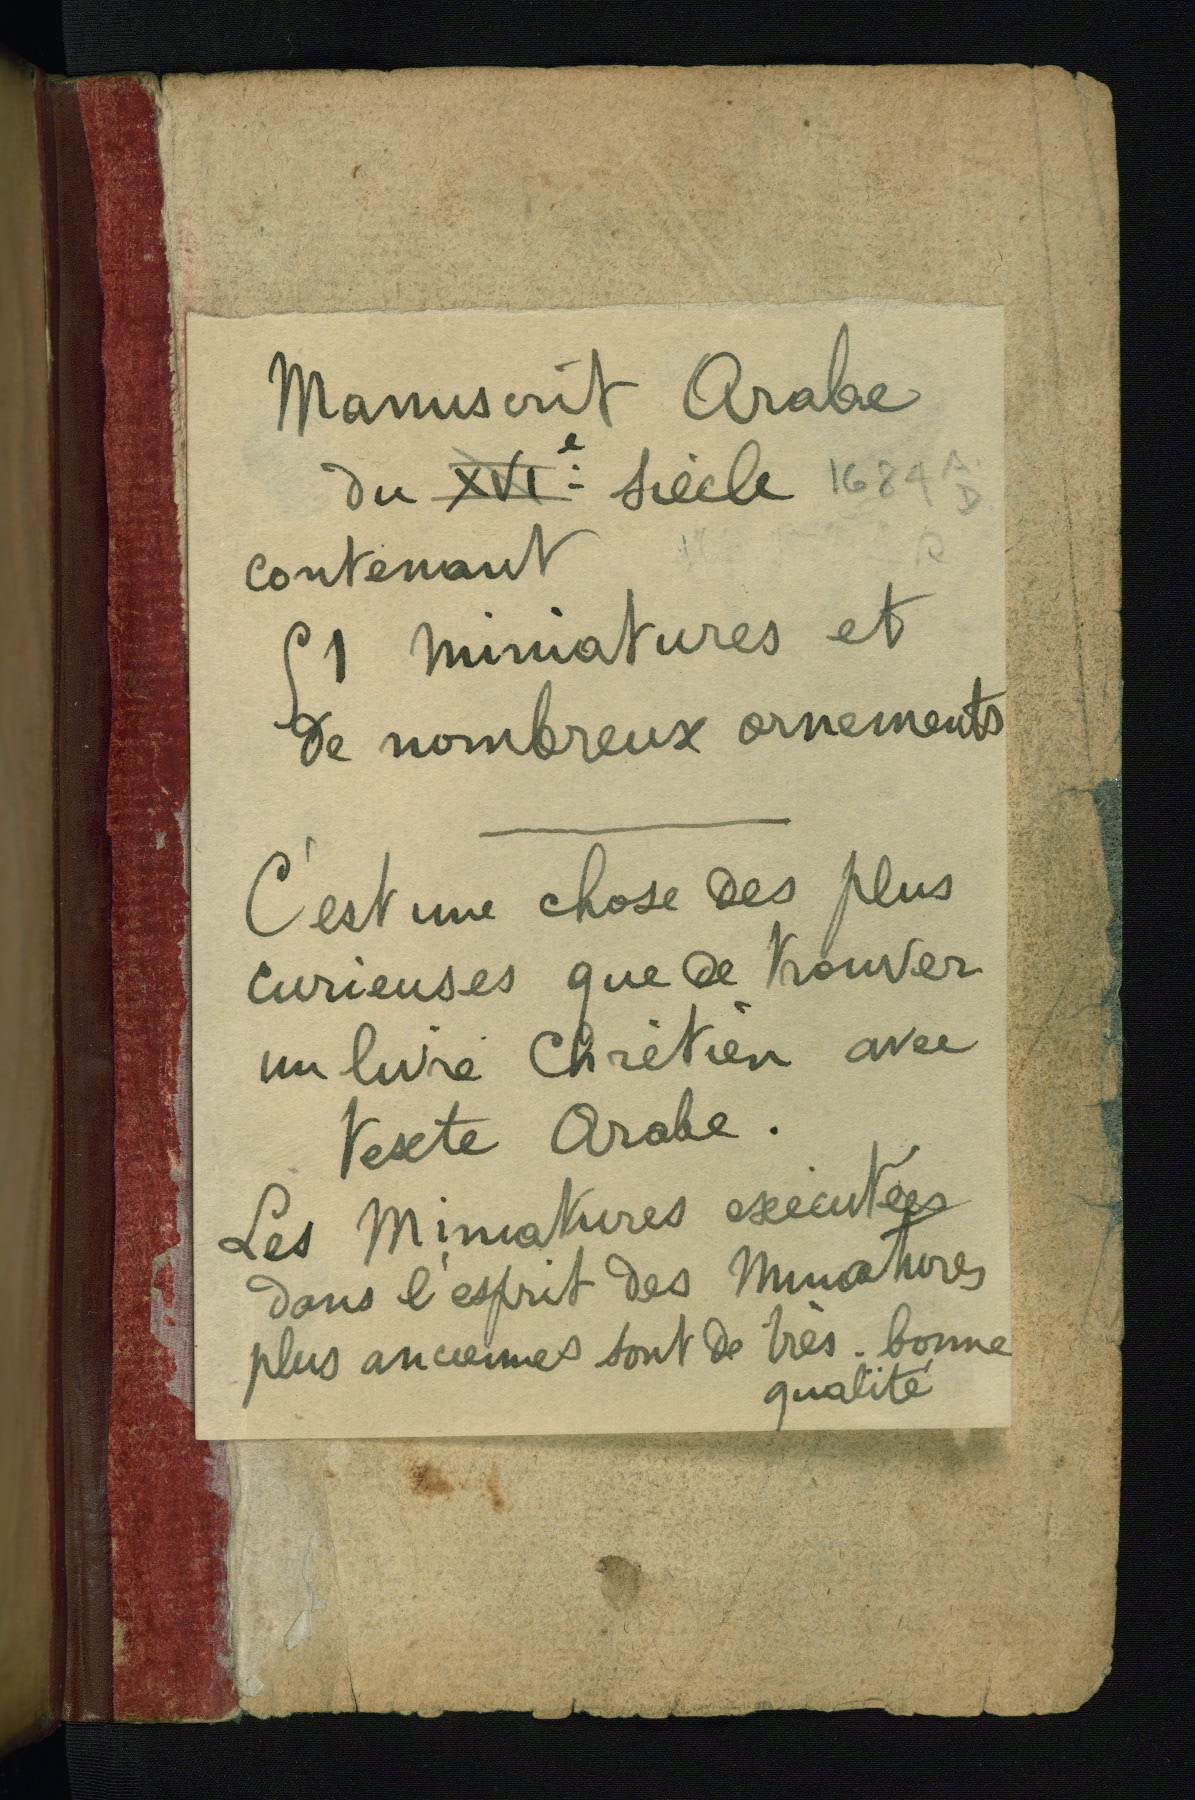 Manuscrit Arabe
du XVIe siècle 1684 A.D
contenant
51 Miniatures et
de nombreux ornements
C'est une chose des plus
curieuses que de trouver
un livre Chrétien avec
texte Arabe.
Les Miniatures exécutées
dans l'esprit des Miniatures
plus anciennes sont de très bonne
qualité